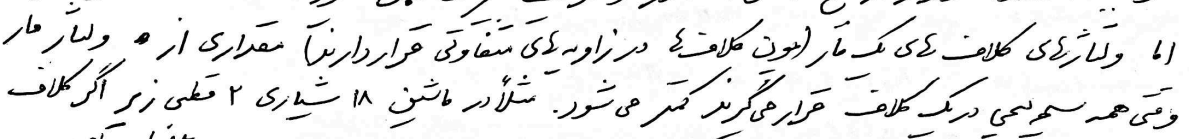 اما ولتاژهای کلاف های یک فاز (چون کلاف ها در زاویه های متفاوتی قرار دارند) مقداری از ولتاژ فاز
وقتی همه سیم پیچی در یک کلاف قرار می گیرند کمتر می شود. مثلاً در ماشین ۱۸ شیاری ۲ قطبی زیر اگر کلاف